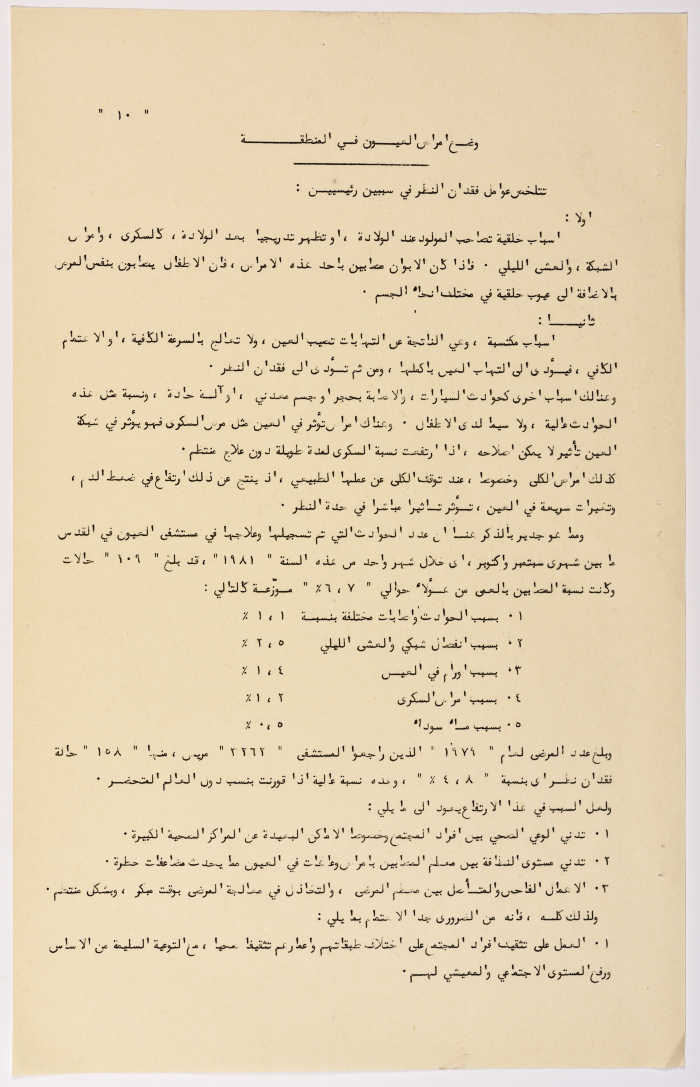 " ١٠ "
وضع امراض العيون في المنطقة
تتلخص عوامل فقدان النظر في سببين رئيسيين :
اولا :
اسباب خلقية تصاحب المولود عند الولادة ، او تظهر تدريجيا بعد الولادة ، كالسكرى ، وامراض
الشبكة ، والعشى الليلي ٠ فاذا كان الابوان مصابين باحد هذه الامراض ، فان الاطفال يصابون بنفس المرض
بالاضافة الى عيوب خلقية في مختلف انحاء الجسم ٠
ثانيـــا :
اسباب مكتسبة ، وهي الناتجة عن التهابات تصيب العين ، ولا تعالج بالسرعة الكافية ، او الاهتمام
الكافي ، فيؤدى الى التهاب العين باكملها ، ومن ثم تؤدى الى فقدان النظر ٠
وهنالك اسباب اخرى كحوادث السيارات ، والاصابة بحجر او جسم معدني ، او آلـة حادة ، ونسبة مثل هذه
الحوادث عالية ، ولا سيما لدى الاطفال ٠ وهناك امراض تؤثر في العين مثل مرض السكرى فهو يؤثر في شبكة
العين تأثير لا يمكن اصلاحه ، اذا ارتفعت نسبة السكرى لمدة طويلة دون علاج منتظم ٠
كذلك امراض الكلى وخصوصا ، عند توقف الكلى عن عملها الطبيعي ، اذ ينتج عن ذلك ارتفاع في ضغط الدم ،
وتغيرات سريعة في العين ، تـؤثر تاثيرا مباشرا في حدة النظر ٠
ومما هو جدير بالذكر هنـا ان عدد الحوادث التي تم تسجيلها وعلاجها في مستشفى العيون في القدس
ما بين شهرى سبتمبر واكتوبر ، اى خلال شهر واحد من هذه السنة " ١٩٨١ " ، قد بلغ " ١٠٩ " حالات
وكانت نسبة المصابين بالعمى من هـؤلاء حوالي " ٦،٧ ٪ " مـوزّعـة كالتالي :
١٠ بسبب الحوادث واصابات مختلفة بنسبـة ١،١ ٪
٢٠ بسبب انفصال شبكي والعشى الليلي ٢،٥ ٪
٣٠ بسبب اورام في العيـن ١،٤ ٪
٤٠ بسبب امراض السكرى ١،٢ ٪
٥٠ بسبب مـاء سوداء ٠،٥ ٪
وبلغ عدد المرضى لعام " ١٩٧٩ " الذين راجعوا المستشفى " ٢٢٦٢ " مريض ، منهـا " ١٥٨ " حالة
فقدان نظـر اى بنسبة " ٤،٨ ٪ " ، وهـذه نسبة عالية اذا قورنت بنسب دول العالم المتحضـر ٠
ولعل السبب في هذا الارتفاع يعود الى ما يلي :
١٠ تدني الوعي الصحي بين افراد المجتمع وخصوصا الاماكن البعيدة عن المراكز الصحية الكبيرة ٠
٢٠ تدني مستوى النظافة بين معظم المصابين بامراض وعاهات في العيون مما يحدث مضاعفات خطرة ٠
٣٠ الاهمال الفاحش والمتـأصل بين معظم المرضى ، والتخاذل في معالجة المرضى بوقت مبكر ، وبشكل منتظم ٠
ولذلك كلــه ، فانه من الضرورى جدا الاهتمام بما يلي :
١٠ العمل على تثقيف افراد المجتمع على اختلاف طبقاتهم واعمارهم تثقيفا صحيا ، مع التوعية السليمة من الاساس
ورفع المستوى الاجتماعي والمعيشي لهـم ٠